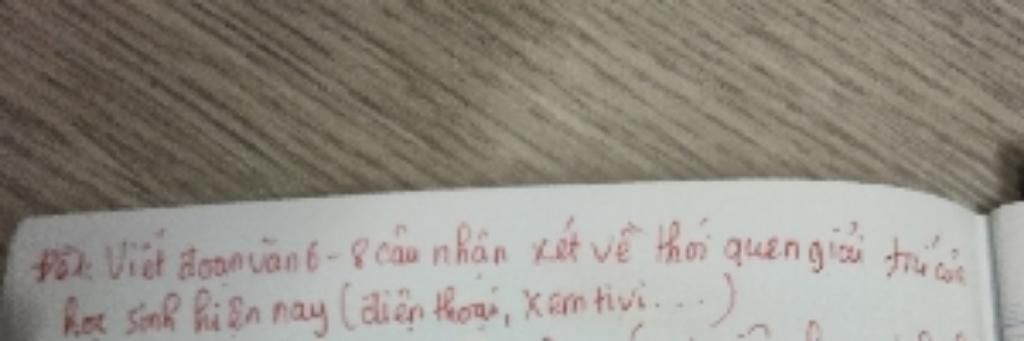 Viết đoạn văn 6 - 8 câu nhận xét về thói quen giải trí của
học sinh hiện nay (điện thoại, xem tivi...)